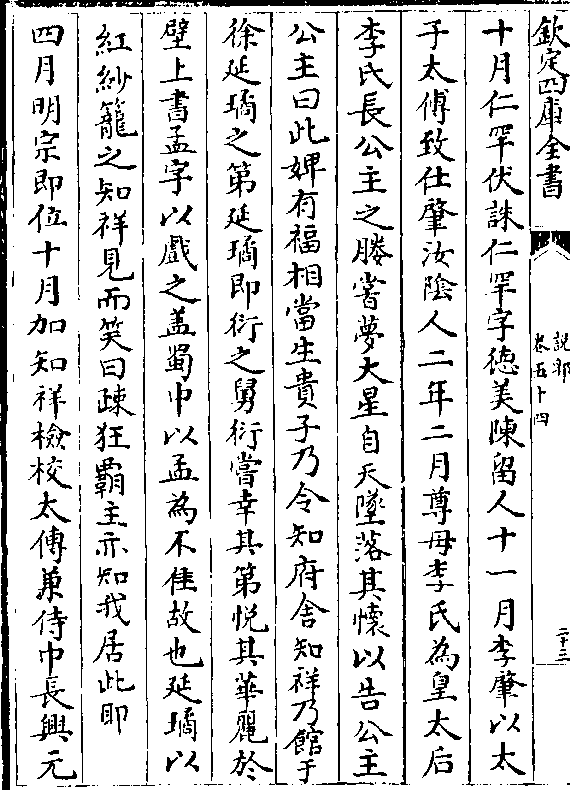 欽定四庫全書
說郛
卷五十四
二十三
十月仁罕伏誅仁罕字徳美陳留人十一月李肇以太
子太傅致仕肇汝隂人二年二月尊母李氏為皇太后
李氏長公主之媵嘗夢大星自天墜落其懐以告公主
公主曰此婢有福相當生貴子乃令知府舍知祥乃館于
徐延璚之第延璚即衍之舅衍嘗幸其第悦其華麗於
壁上書孟字以戲之盖蜀中以孟為不佳故也延璚以
紅紗籠之知祥見而笑曰疎狂霸主亦知我居此耶
四月明宗即位十月加知祥檢校太傅兼侍中長興元